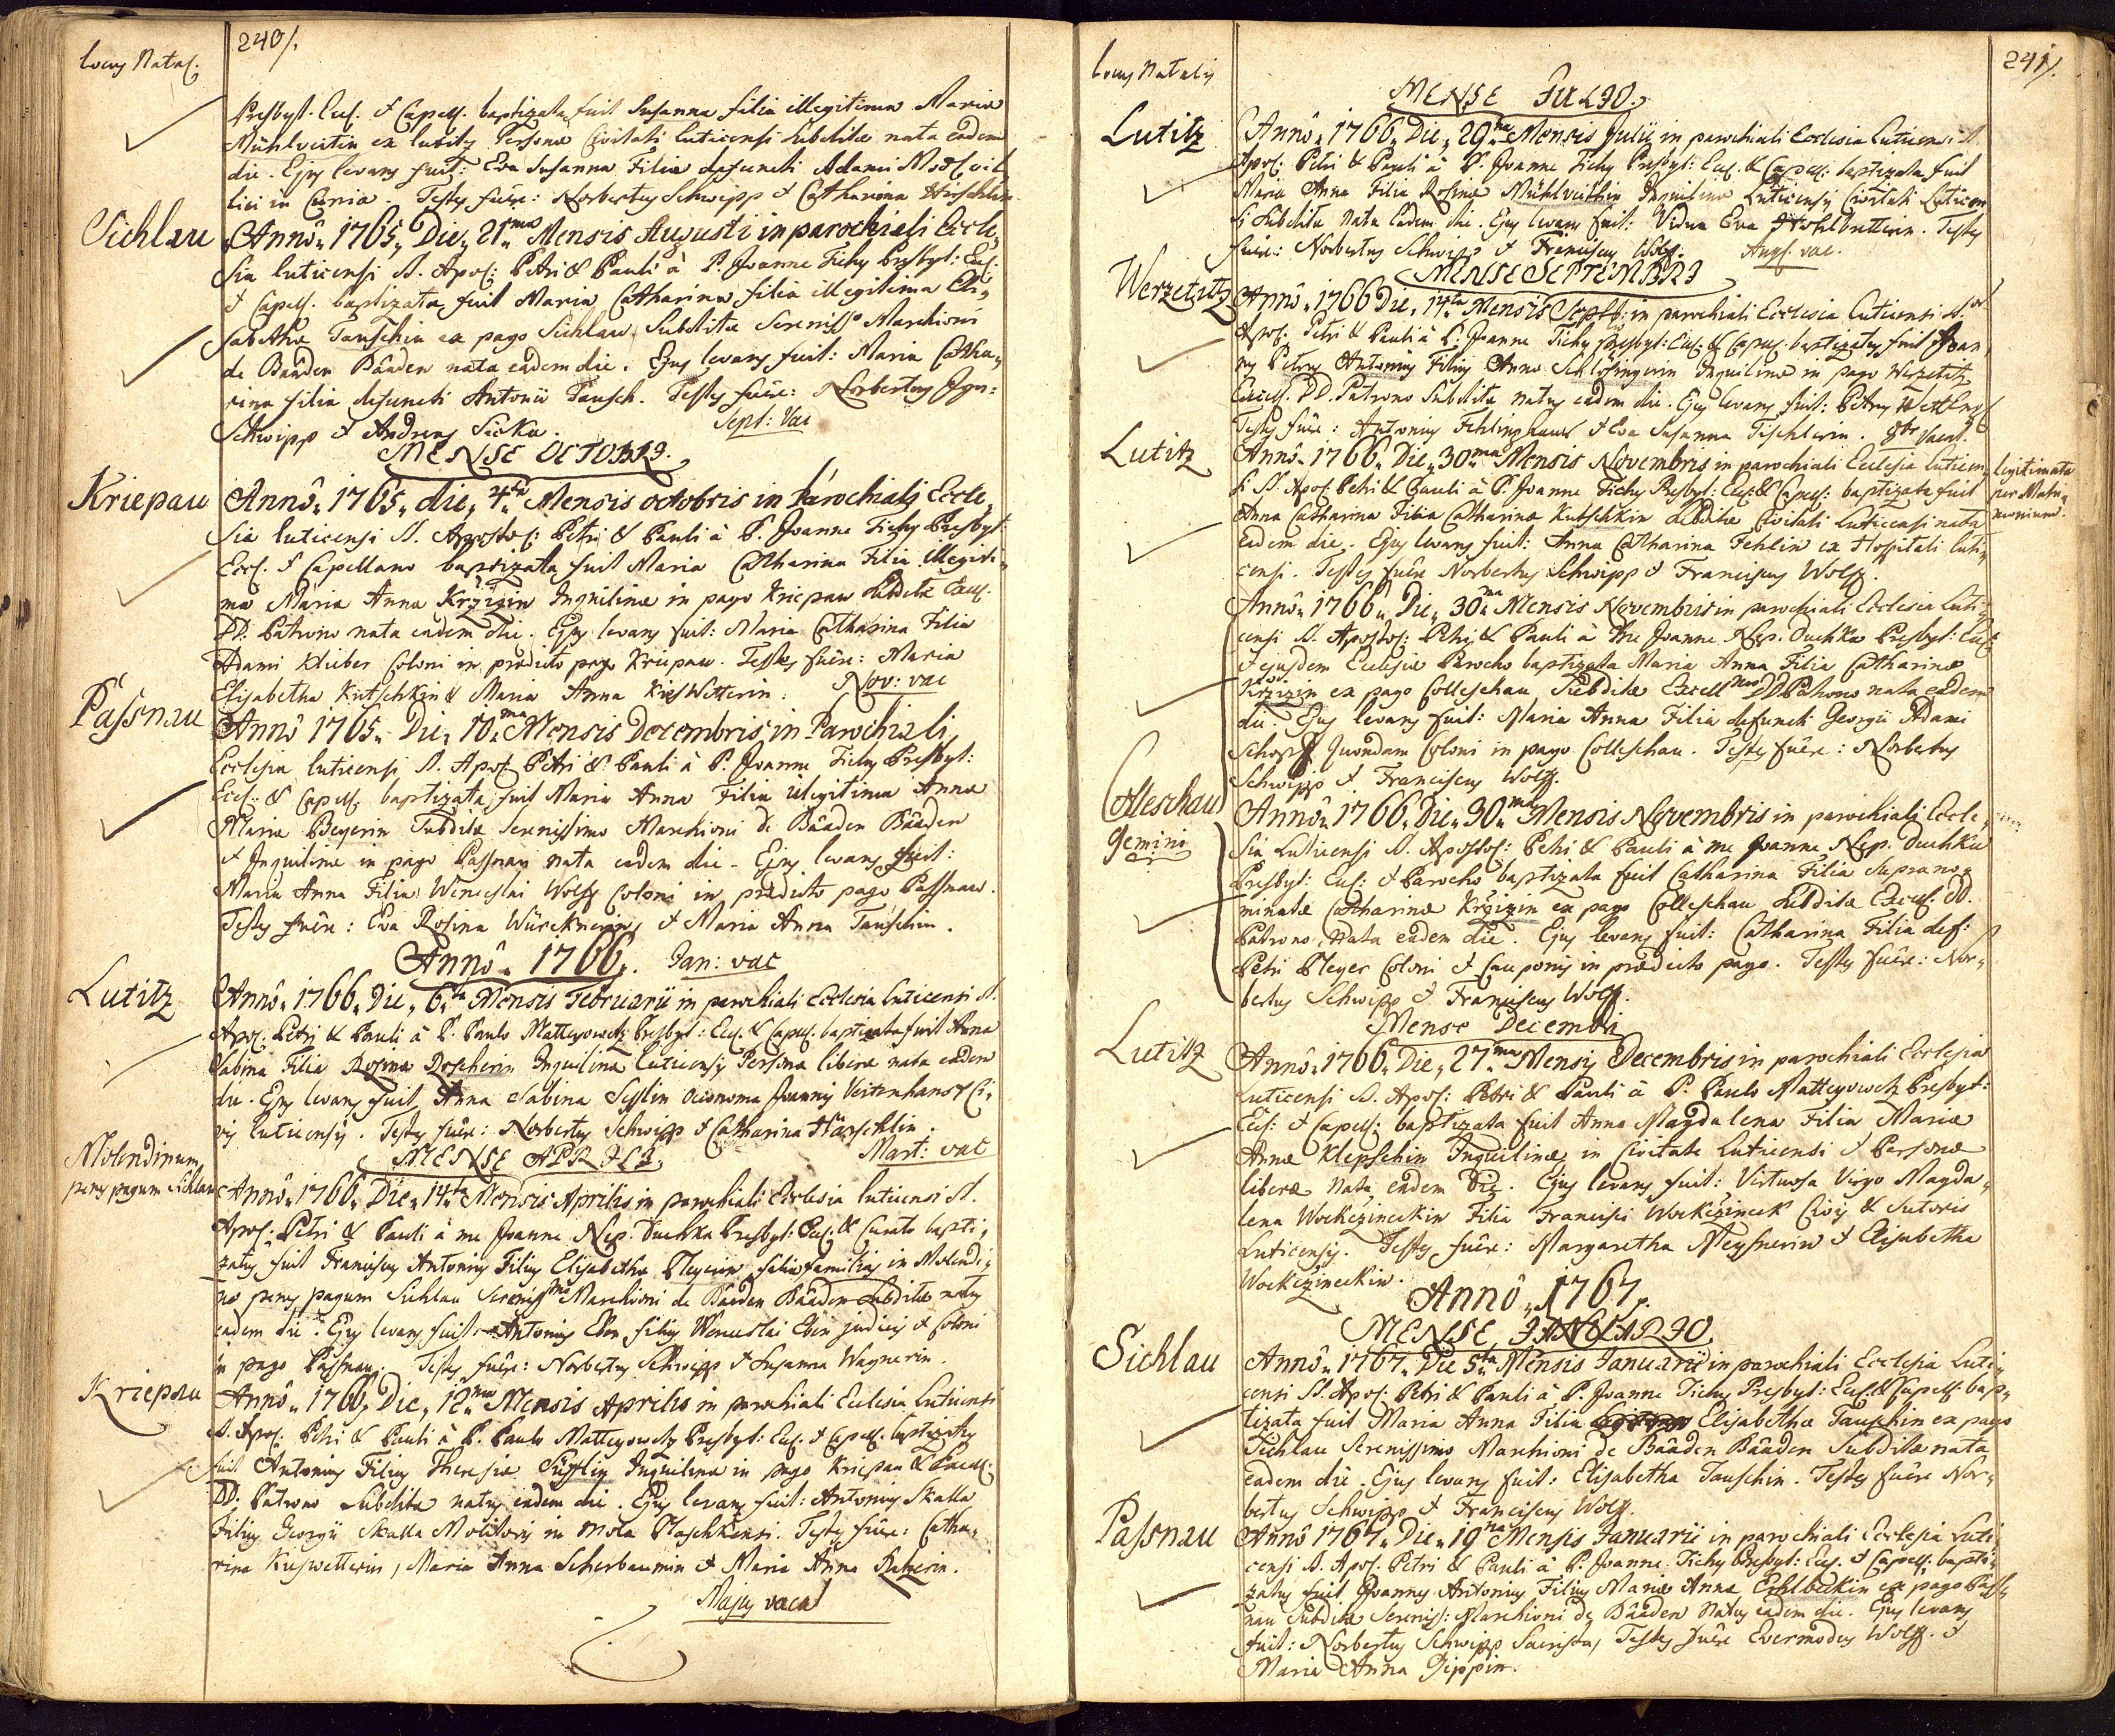 240/.
Locus Natal.
Presbyt. Eccl. & Capell. baptizata fuit Susanna filia illegitima Mariæ
Mühlveitin ex Lutitz Persona Civitati luticensi Subditæ nata eadem
die. Ejus levans fuit: Eva Susanna Filia defuncti Adami
in Curia. Testes fuêre: Norbertus Schwipp & Catharina
Sichlau
Annô 1765, Die, 21ma Mensis Augusti in parochiali Eccle,
sia luticensi S. Apos: Petri & Pauli à P. Joanne Tichy Presbyt: Eccl:
& Capell. baptizata fuit Maria Catharina filia illegitima Eli,
sabethæ Tauschin ex pago Sichlau Subditæ Sereniss° Marchioni
de Baaden Baaden nata eadem die. Ejus levans fuit: Maria Catha,
rina filia defuncti Antonii Tausch. Testes fuêre: Norbertus Ign:
Schwipp & Andreas Sicka.
Sept: Vac
MENSE OCTOBRI.
Kriepau
Annô 1765, die, 4ta Mensis octobris in Parochiali Eccle,
sia luticensi S. Apostol: Petri & Pauli à P. Joanne Tichy Presbyt
Eccl. & Capellano baptizata fuit Maria Catharina Filia illegiti,
ma Mariæ Annæ Kržižin Inquilinæ in pago Kriepau Subditæ Excell.
DD. Patrono nata eadem die. Ejus levans fuit: Maria Catharina Filia
Adami Klieber Coloni in prædicto pago Kriepau. Testes fuêre: Maria
Elisabetha Kutschkin & Maria Anna Kieswetterin.
Nov: vac
Passnau
Annô 1765. Die 10ma Mensis Decembris in Parochiali
Ecclesia luticensi S. Apos: Petri & Pauli à P. Joanne Tichy Presbyt:
Eccl: & Capell. baptizata fuit Maria Anna Filia illegitima Annæ
Mariæ Beyerin Subditæ Serenissimo Marchioni de Baaden Baaden
& Inquilinæ in pago Passnau nata eadem die. Ejus levans fuit:
Maria Anna Filia Wenceslai Wolff Coloni in prædicto pago Passnau.
Testes fuêre: Eva Rosina & Maria Anna Tauschin.
Annô. 1766.
Jan: vac
Lutitz
Annô. 1766. Die, 6ta Mensis Februarii in parochiali Ecclesia luticensi S.
Apos: Petri & Pauli à P. Paulo Matteyowetz Presbyt: Eccl. & Capell. baptizata fuit Anna
Sabina Filia Rosinæ Inquilinæ luticensis Personæ liberæ nata eadem
die. Ejus levans fuit Anna Sabina oeconoma Joannis Ci,
vis luticensis. Testes fuêre: Norbertus Schwipp & Catharina
Mart: vac
MENSE APRILI
Molendinum
penes pagum Sichlau
Annô. 1766. Die 14ta Mensis Aprilis in parochiali Ecclesia luticensi S.
Apos: Petri & Pauli à me Joanne Nep. Duchka Presbyt: Eccl. & Curato bapti,
zatus fuit Franciscus Antonius Filius Elisabethæ filiæfamilias in Molendi,
no penes pagum Sichlau Serenissmo Marchioni de Baaden Baaden Subditæ natus
eadem die. Ejus levans fuit Antonius filius Wenceslai judicis & Coloni
in pago Passnau. Testes fuêre: Norbertus Schwipp & Susanna Wagnerin.
Kriepau
Annô. 1766, Die, 18ma Mensis Aprilis in parochiali Ecclesia Luticensi
S. Apos. Petri & Pauli à P. Paulo Matteyowetz Presbyt: Eccl. & Capell. baptizatus
fuit Antonius Filius Theresiæ Inquilinæ in pago Kriepau & Excell.
DD. Patrono Subditæ natus eadem die. Ejus levans fuit: Antonius Skalla
Filius Georgii Skalla Molitoris in mola Testes fuêre: Catha,
rina Kieswetterin, Maria Anna Scherbaumin & Maria Anna
Majus vacat
241/.
Locus Natalis
MENSE JULIO.
Lutitz
Annô. 1766. Die, 29na Mensis Julii in parochiali Ecclesia Luticensi S.
Apos: Petri & Pauli à P. Joanne Tichy Presbyt: Eccl. & Capell: baptizata fuit
Maria Anna Filia Rosinæ Mühlveithin Inquilinæ Luticensis Civitati Luticen
si Subditæ nata eadem die. Ejus levans fuit: Vidua Eva Testes
fuêre: Norbertus Schwipp & Franciscus Wolff.
Aug. vac.
MENSE SEPTEMBRI
Werzetitz
Annô. 1766 Die, 14ta Mensis Septb: in parochiali Ecclesia Luticensi S.
Apos: Petri & Pauli à P. Joanne Tichy Presbyt: Eccl. & Capell. baptizatus fuit Joan,
nes Petrus Antonius Filius Annæ Schlösingerin Inquilinæ in pago Werzetitz
Excell. DD. Patrono Subditæ natus eadem die. Ejus levans fuit: Petrus
Testes fuêre: Antonius & Eva Susanna Tischlerin. 8br vacat.
Lutitz
Annô. 1766. Die, 30ma Mensis Novembris in parochiali Ecclesia Luticen,
si S. Apos: Petri & Pauli à P. Joanne Tichy Presbyt: Eccl: & Capell: baptizata fuit
Anna Catharina Filia Catharinæ Kutschkin Subditæ Civitati Luticensi nata
eadem die. Ejus levans fuit: Anna Catharina Fehlin ex Hospitali luti,
censi. Testes fuêre Norbertus Schwipp & Franciscus Wolff.
legitimata
per Matri,
monium.
Annô. 1766. Die, 30ma Mensis Novembris in parochiali Ecclesia Luti,
censi S. Apostol: Petri & Pauli à me Joanne Nep. Duchka Presbyt: Eccl:
& ejusdem Ecclesiæ Parocho baptizata Maria Anna Filia Catharinæ
Kržižin ex pago Colleschau Subditæ Excellmo DD Patrono nata eadem
die. Ejus levans fuit: Maria Anna Filia defuncti Georgii Adami
Schopff quondam Coloni in pago Colleschau. Testes fuêre: Norbertus
Schwipp & Franciscus Wolff.
Colleschau
Gemini
Annô. 1766. Die. 30ma Mensis Novembris in parochiali Eccle,
sia Luticensi S. Apostol: Petri & Pauli à me Joanne Nep. Duchka
Presbyt: Eccl: & Parocho baptizata fuit Catharina Filia supra no,
minatæ Catharinæ Kržižin ex pago Colleschau Subditæ Excell. DD.
Patrono, nata eadem die. Ejus levans fuit: Catharina Filia def:
Petri Coloni & Cauponis in prædicto pago. Testes fuêre: Nor,
bertus Schwipp & Franciscus Wolff.
Mense Decembri
Lutitz
Annô. 1766. Die, 27ma Mensis Decembris in parochiali Ecclesia
Luticensi S. Apos: Petri & Pauli à P. Paulo Matteyowetz Presbyt:
Eccl: & Capell: baptizata fuit Anna Magdalena Filia Mariæ
Annæ Klepschin Inquilinæ in Civitate Luticensi & Personæ
liberæ nata eadem die. Ejus levans fuit: Virtuosa Virgo Magda,
lena Workezineckin Filia Francisci Workezineck Civis & Sutoris
Luticensis. Testes fuêre: Margaretha Meysnerin & Elisabetha
Workezineckin.
Annô. 1767.
MENSE JANUARIO.
Sichlau
Annô. 1767. Die 5ta Mensis Januarii in parochiali Ecclesia Luti,
censi S. Apos: Petri & Pauli à P. Joanne Tichy Presbyt: Eccl: & Capell: bap,
tizata fuit Maria Anna Filia Elisabethæ Tauschin ex pago
Sichlau Serenissimo Marchioni de Baaden Baaden Subditæ nata
eadem die. Ejus levans fuit: Elisabetha Tauschin. Testes fuêre Nor,
bertus Schwipp & Franciscus Wolff.
Passnau
Annô 1767. Die 19na Mensis Januarii in parochiali Ecclesia Luti,
censi S. Apos: Petri & Pauli à P. Joanne Tichy Presbyt: Eccl. & Capell: bapti,
zatus fuit Joannes Antonius Filius Mariæ Annæ ex pago Pass,
nau Subditæ Sereniss: Marchioni de Baaden natus eadem die. Ejus levans
fuit: Norbertus Schwipp Testes fuêre Evermodus Wolff &
Maria Anna Zippin.